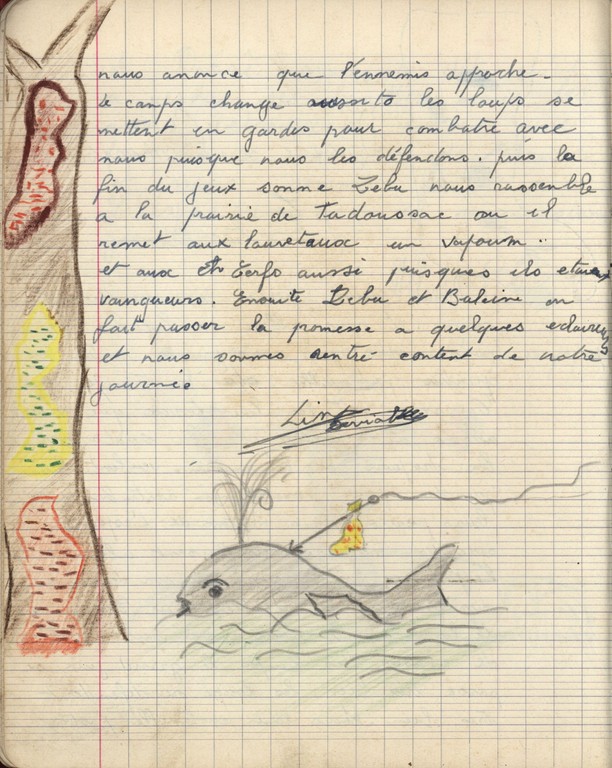 nous anonce que l'ennemis approche.
le camps change les loups se
mettent en gardes pour combatre avec
nous puisque nous les défendons. puis la
fin du jeux sonne Zebu nous rassemble
a la prairie de Tadoussac ou il
remet aux louvetaux un vapoum..
et aux Cerfs aussi puisques ils etaux
vainqueurs. Ensuite Zebu et Baleine on
fait passer la promesse a quelques eclaireurs
et nous sommes rentré content de notre
journés